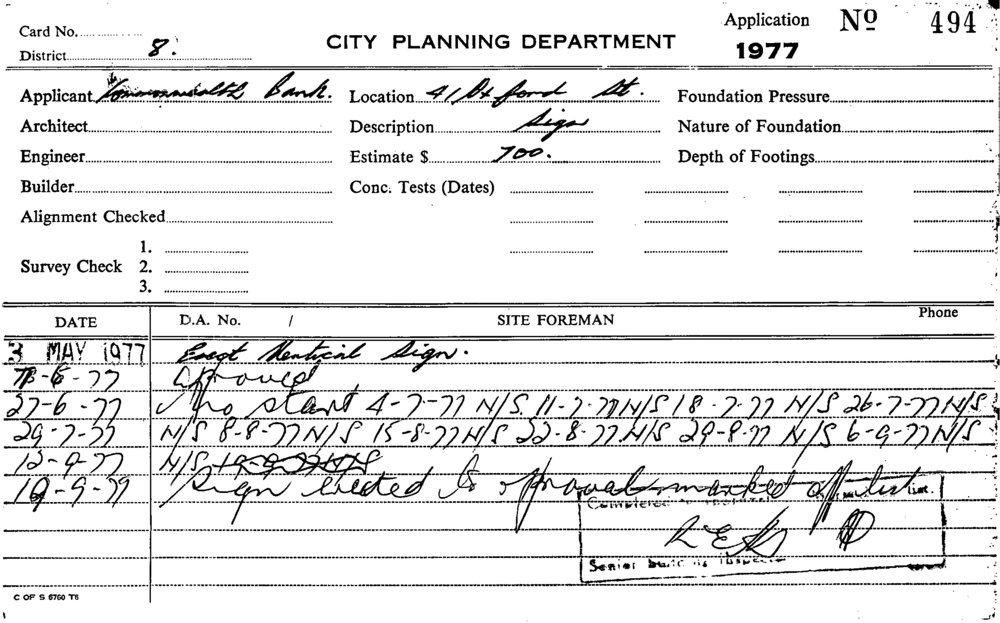 Card No.
Application Nº 494
District 8.
CITY PLANNING DEPARTMENT
1977
Applicant Commonwealth Bank. Location 41 Oxford St. Foundation Pressure
Architect Description Sign Nature of Foundation
Engineer Estimate $ 700. Depth of Footings
Builder Conc. Tests (Dates)
Alignment Checked
1.
Survey Check 2.
3.
DATE D.A. No. / SITE FOREMAN Phone
3 MAY 1977 Erect Sign.
-6-77 Approved
27-6-77 No start 4-7-77 N/S. 11-7-77 N/S 18-7-77 N/S 26-7-77 N/S
29-7-77 N/S 8-8-77 N/S 15-8-77 N/S 22-8-77 N/S 29-8-77 N/S 6-9-77 N/S
12-9-77 N/S
19-9-77 Sign erected to approval marked off
Completed
Senior Building Inspector
C OF S 6760 T6